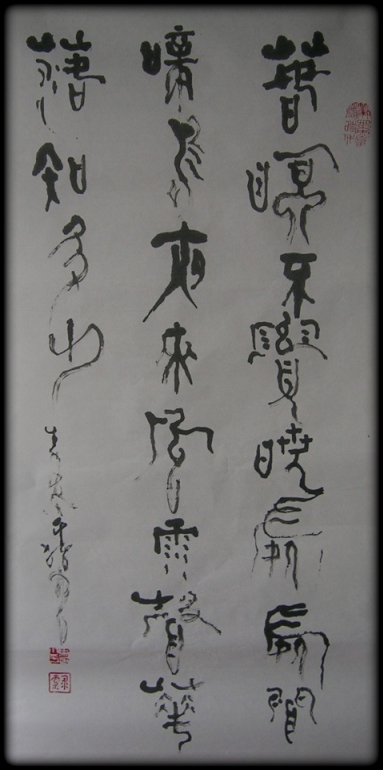 春眠不覺曉處處聞
啼鳥夜來風雨聲華
落知多少